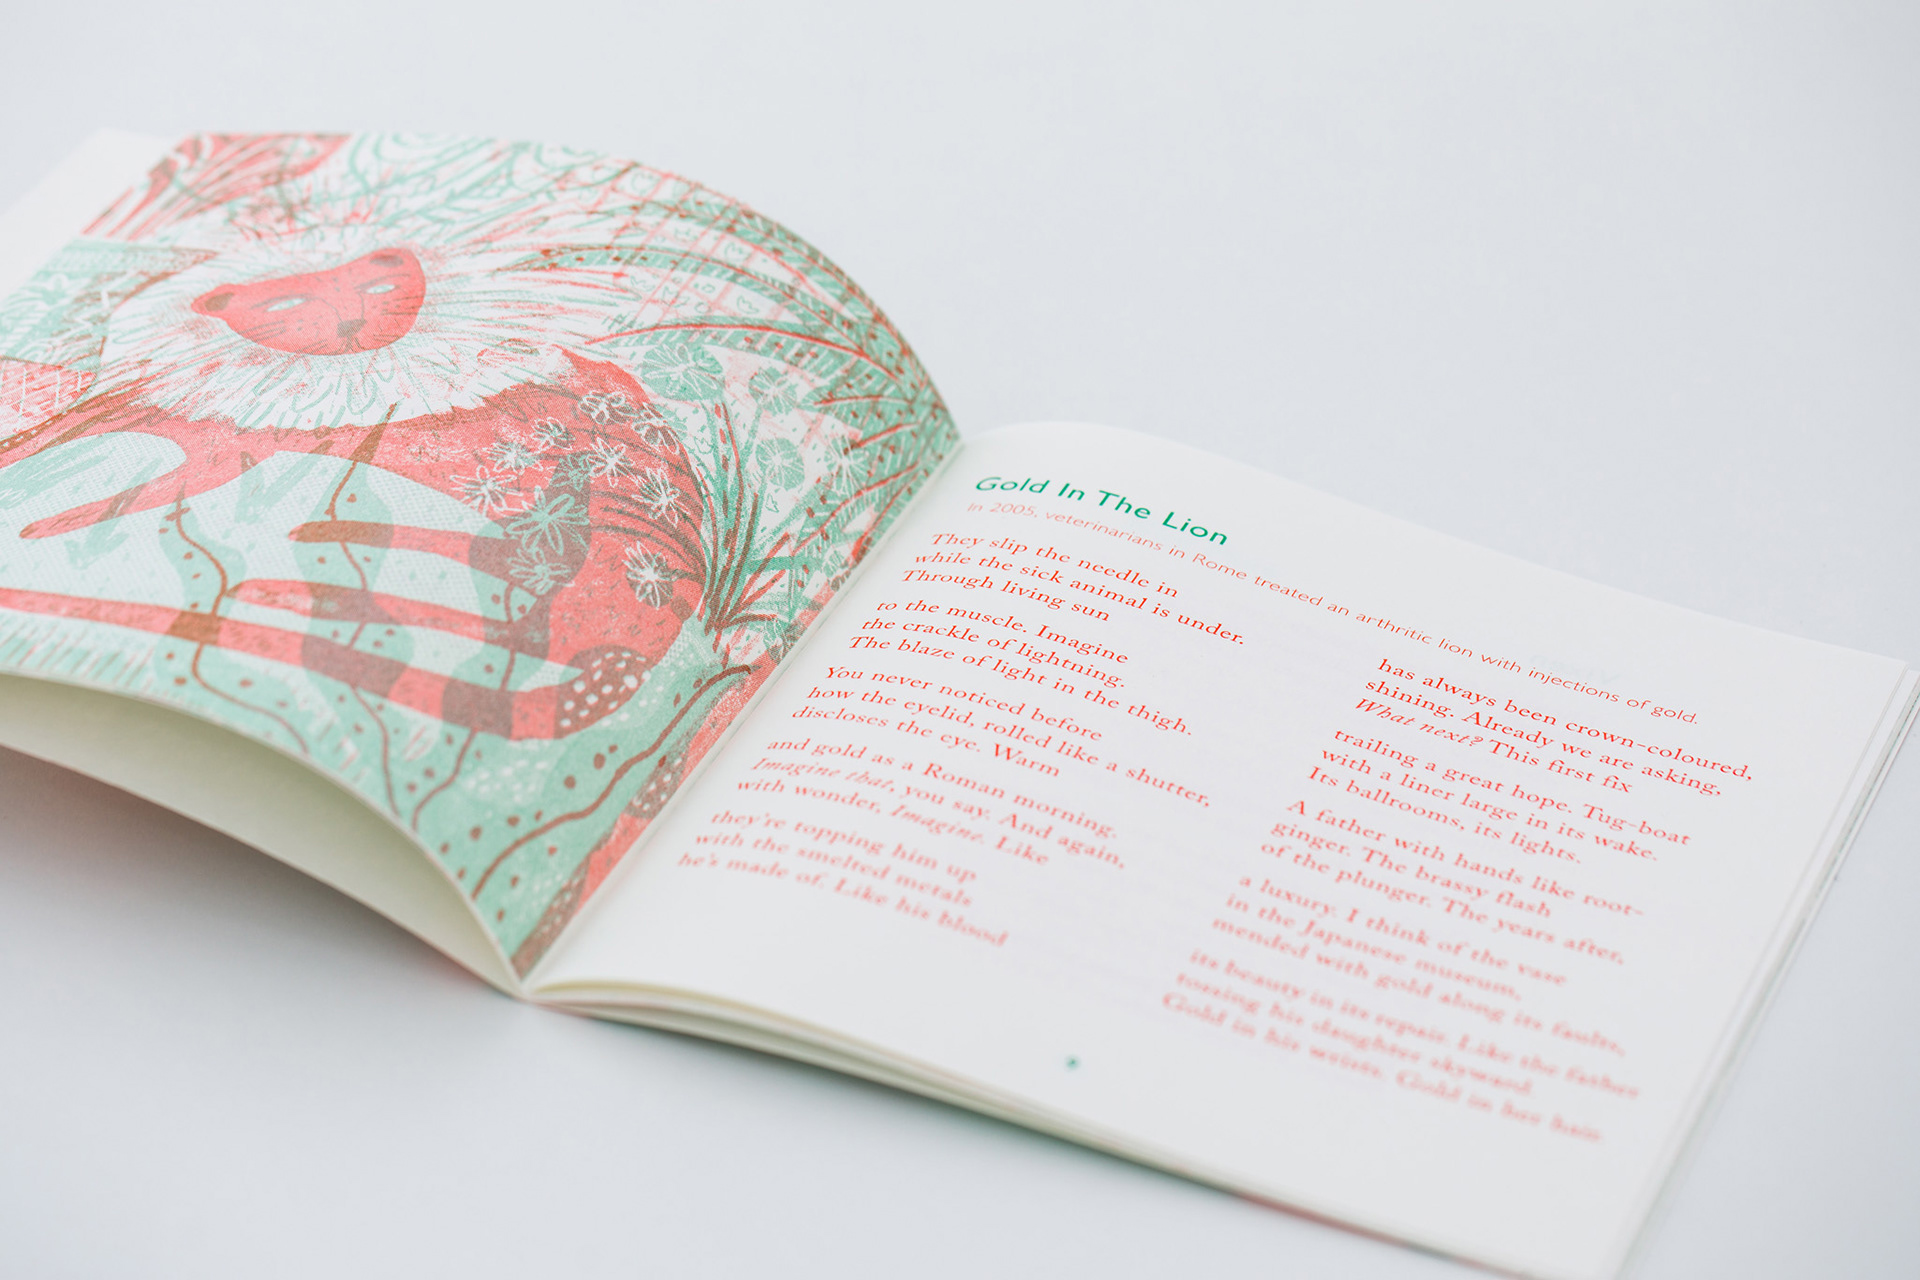 Gold In The Lion
In 2005, veterinarians in Rome treated an arthritic lion with injections of gold.
They slip the needle in
while the sick animal is under.
Through living sun
to the muscle. Imagine
the crackle of lightning.
The blaze of light in the thigh.
You never noticed before
how the eyelid, rolled like a shutter,
discloses the eye. Warm
and gold as a Roman morning.
Imagine that, you say. And again,
with wonder, Imagine. Like
they're topping him up
with the smelted metals
he's made of. Like his blood
has always been crown-coloured,
shining. Already we are asking,
What next? This first fix
trailing a great hope. Tug-boat
with a liner large in its wake.
Its ballrooms, its lights.
A father with hands like root-
ginger. The brassy flash
of the plunger. The years after,
a luxury. I think of the vase
in the Japanese museum,
mended with gold along its faults,
its beauty in its repair. Like the father
tossing his daughter skyward.
Gold in his wrists. Gold in her hair